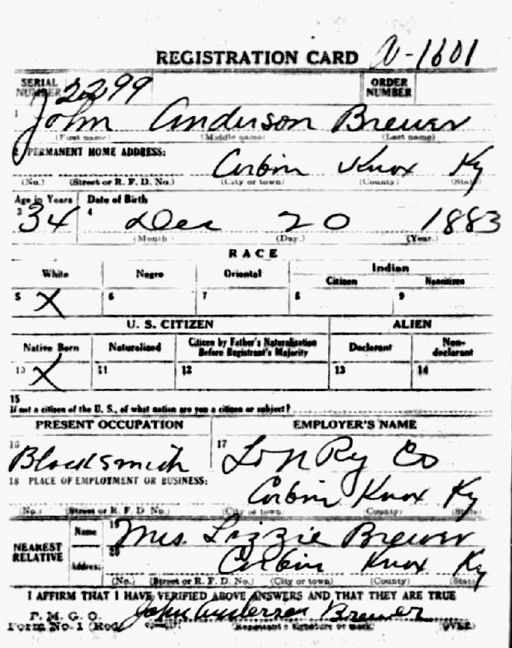 REGISTRATION CARD A-1601
SERIAL NUMBER 2299 ORDER NUMBER
1 John Anderson Brewer
(First name) (Middle name) (Last name)
2 PERMANENT HOME ADDRESS:
Corbin Knox Ky
(No.) (Street or R. F. D. No.) (City or town) (County) (State)
Age in Years Date of Birth
3 34 4 Dec 20 1883
(Month) (Day) (Year)
RACE
White Negro Oriental Indian
Citizen Noncitizen
5 X 6 7 8 9
U. S. CITIZEN ALIEN
Native Born Naturalized Citizen by Father's Naturalization Before Registrant's Majority Declarant Non-declarant
10 X 11 12 13 14
15
If not a citizen of the U. S., of what nation are you a citizen or subject?
PRESENT OCCUPATION EMPLOYER'S NAME
16 Blacksmith 17 L & N Ry Co
18 PLACE OF EMPLOYMENT OR BUSINESS:
Corbin Knox Ky
(No.) (Street or R. F. D. No.) (City or town) (County) (State)
NEAREST RELATIVE Name 19 Mrs. Lizzie Brewer
Address 20 Corbin Knox Ky
(No.) (Street or R. F. D. No.) (City or town) (County) (State)
I AFFIRM THAT I HAVE VERIFIED ABOVE ANSWERS AND THAT THEY ARE TRUE
P. M. G. O. John Anderson Brewer
Form No. 1 (Red) (Registrant's signature or mark) (OVER)